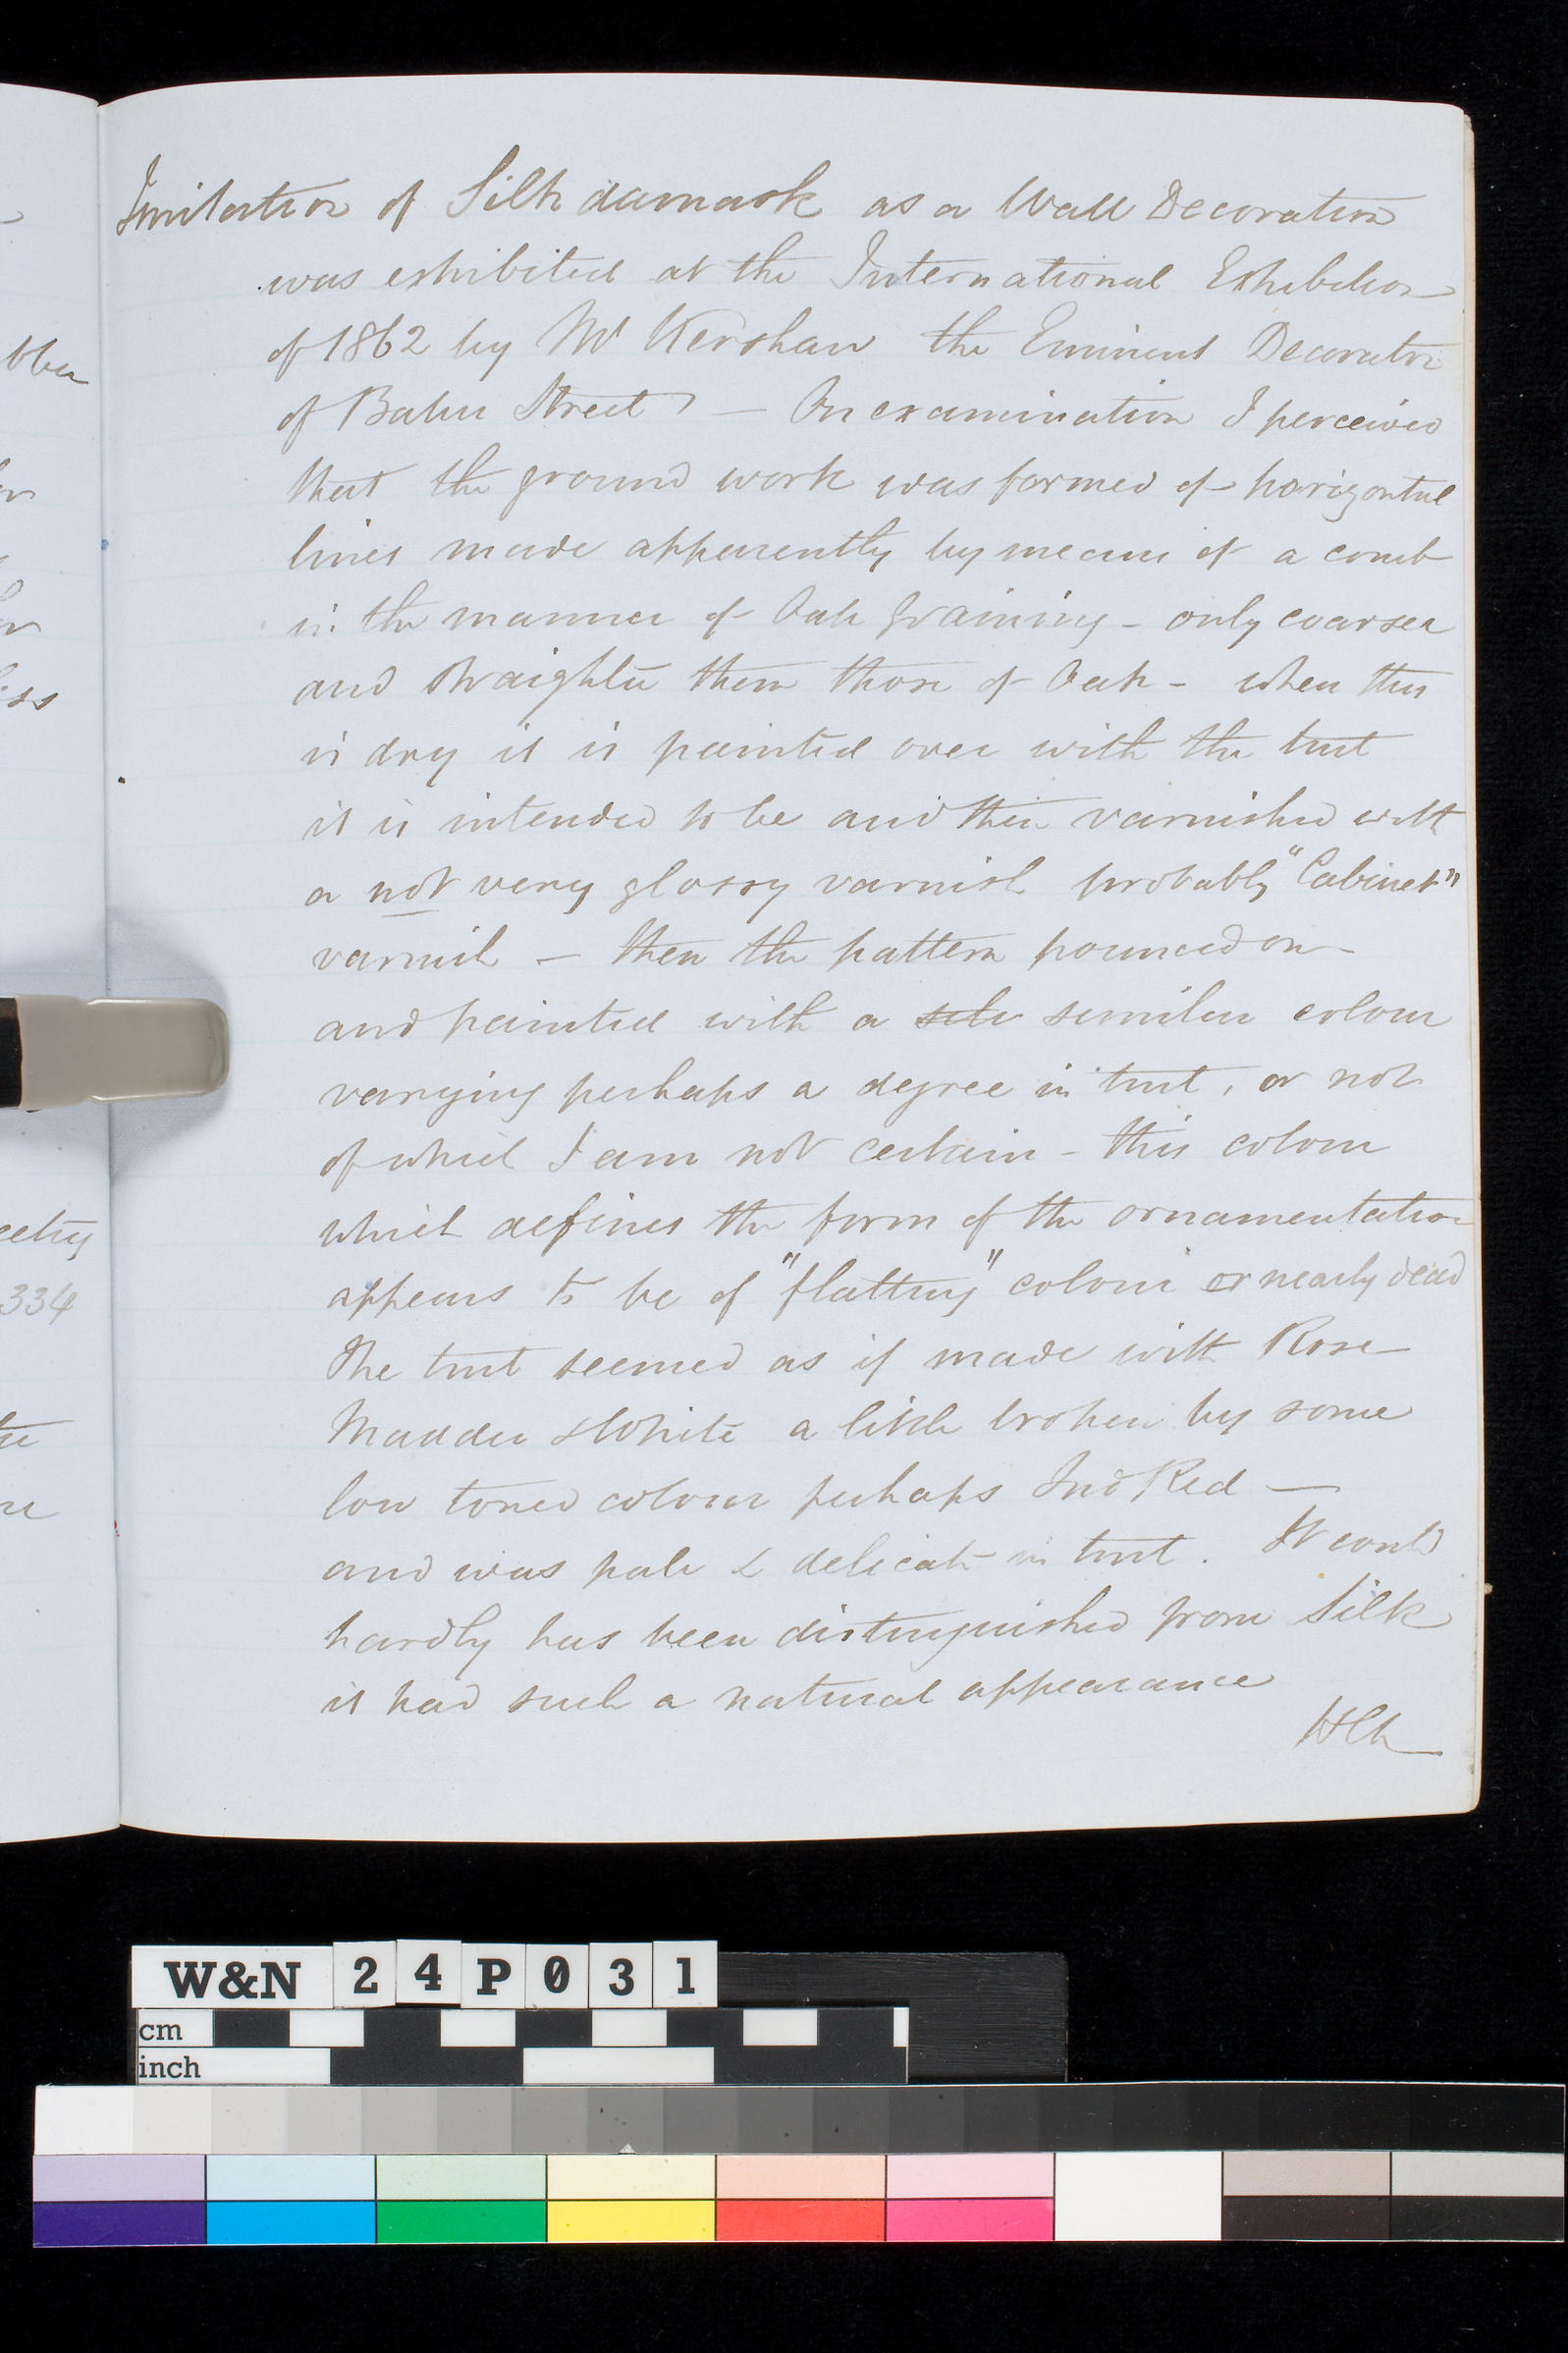 Imitation of Silk damask as a Wall Decoration
was exhibited at the International Exhibition
of 1862 by Mr Kershaw the Eminent Decorator
of Baker Street — On examination I perceived
that the ground work was formed of horizontal
lines made apparently by means of a comb
in the manner of Oak Graining - only coarser
and straighter than those of Oak - when this
is dry it is painted over with the tint
it is intended to be and then varnished with
a not very glossy varnish probably "Cabinet"
varnish — then the pattern pounced on
and painted with a similar colour
varying perhaps a degree in tint, or not
of which I am not certain - this colour
which defines the form of the ornamentation
appears to be of "flatting" colour or nearly dead
The tint seemed as if made with Rose
Madder & White a little broken by some
low toned colour perhaps Ind Red —
and was pale & delicate in tint. It could
hardly has been distinguished from Silk
it had such a natural appearance
HCN
bber
ess
334
W&N 24P031
cm
inch